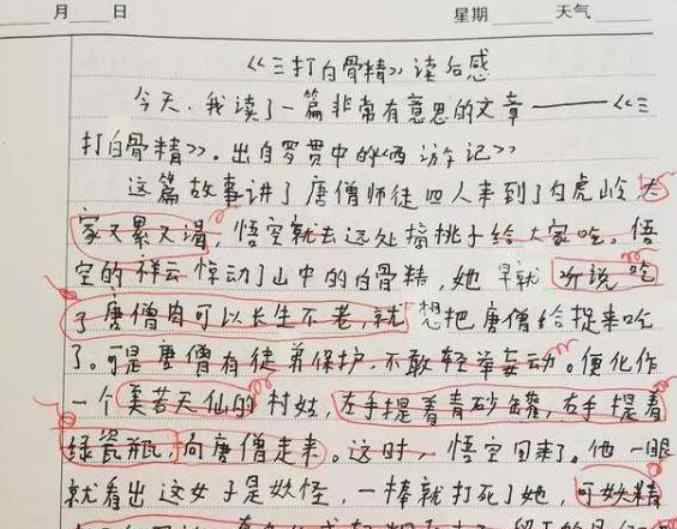 月 日 星期 天气
《三打白骨精》读后感
今天,我读了一篇非常有意思的文章——《三
打白骨精》。出自罗贯中的《西游记》
这篇故事讲了唐僧师徒四人来到了白虎岭,大
家又累又渴,悟空就去远处摘桃子给大家吃。悟
空的祥云惊动了山中的白骨精,她早就听说吃
了唐僧肉可以长生不老,就想把唐僧给捉来吃
了。可是唐僧有徒弟保护,不敢轻举妄动。便化作
一个美若天仙的村姑,左手提着青砂罐,右手提着
绿瓷瓶,向唐僧走来。这时,悟空回来了。他一眼
就看出这女子是妖怪,一棒就打死了她,可妖精